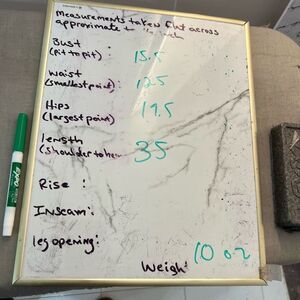 Measurements taken flat across
approximate + 
Bust
(pit to pit) : 15.5
Waist
(smallest point) : 12.5
Hips
(largest point) : 19.5
length
(shoulder to hem 35
Rise :
Inseam :
leg opening :
Weigh: 10 oz
expo